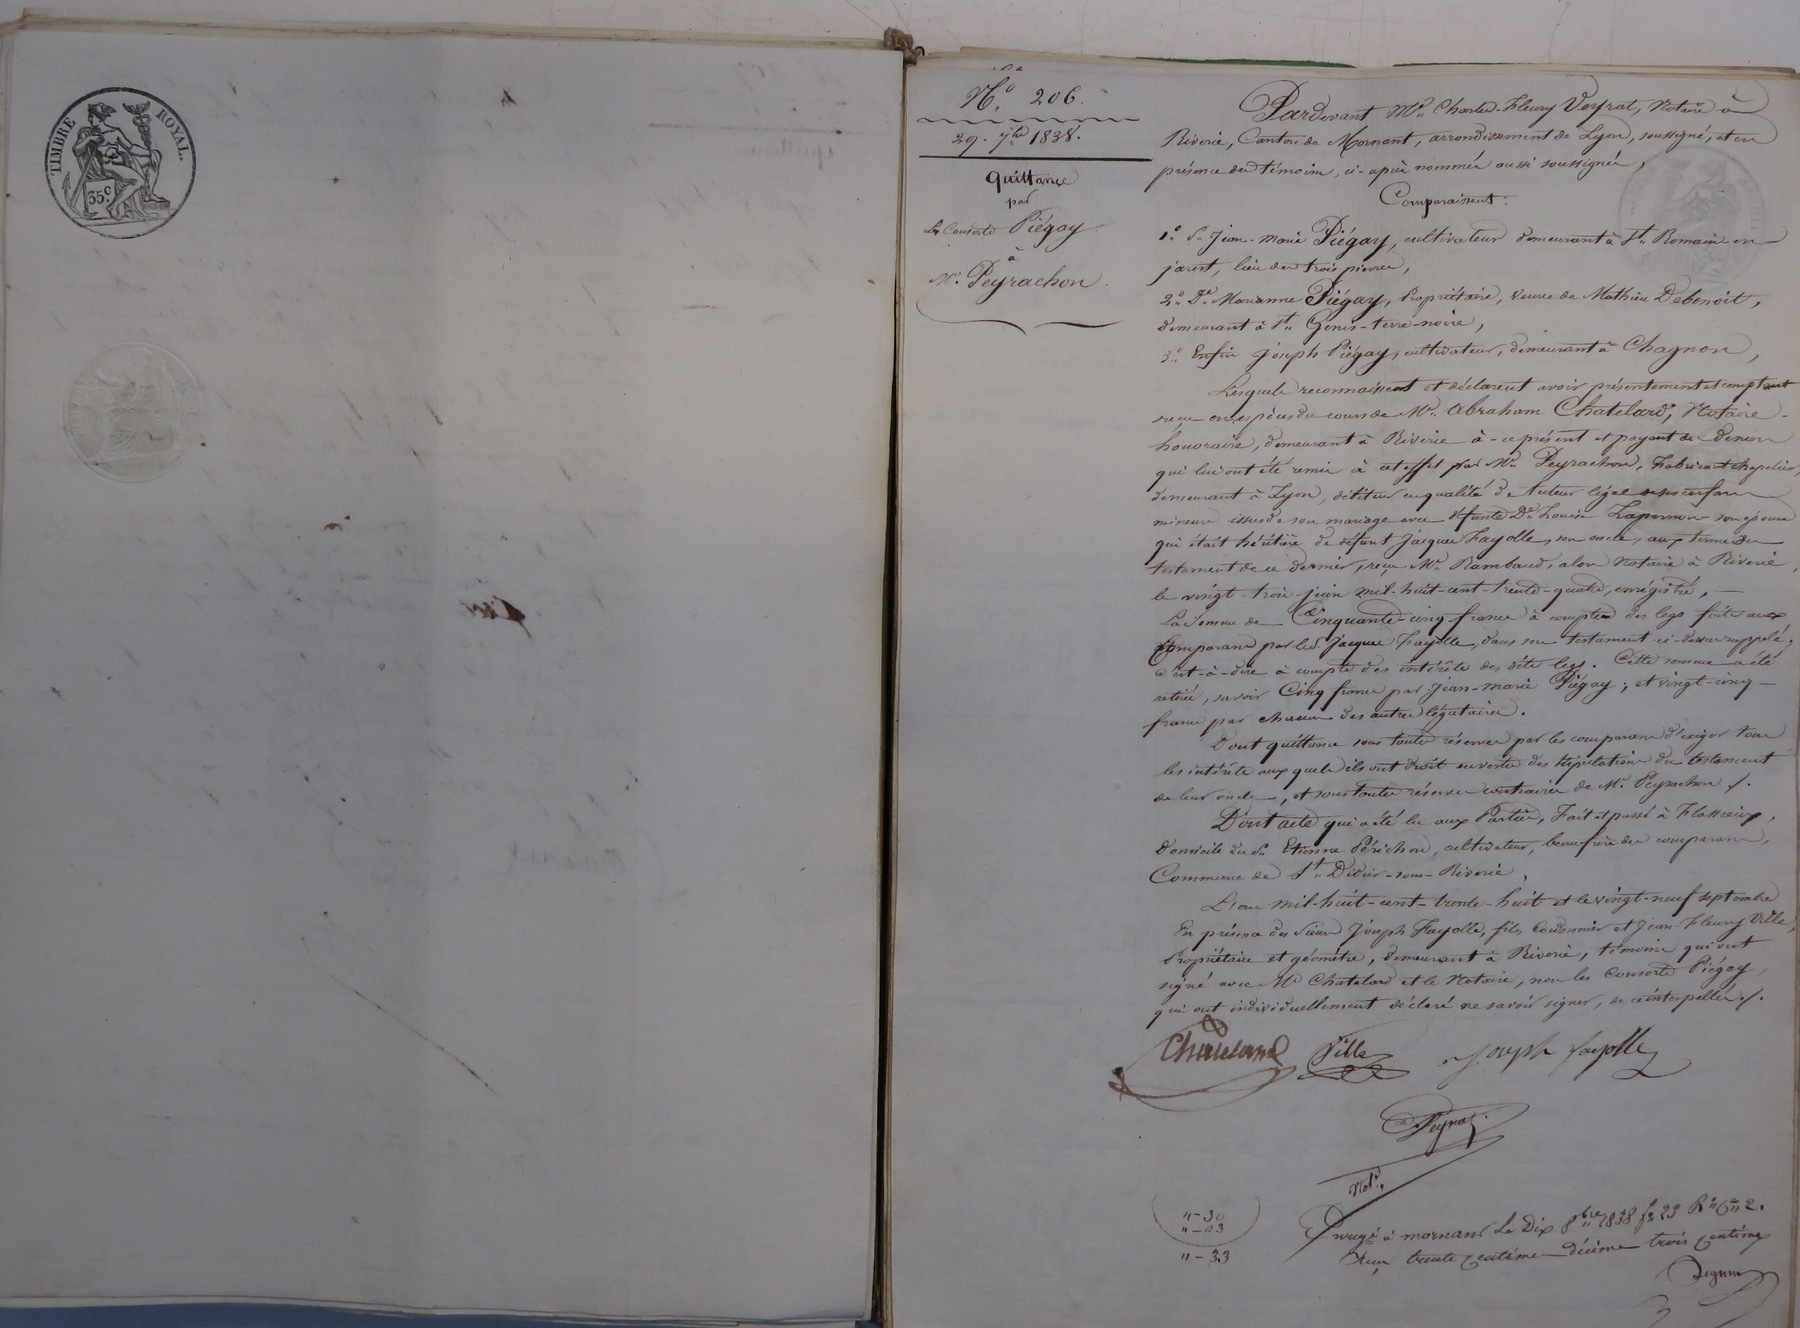 TIMBRE ROYAL.
35c.
N.º 206.
29. 7bre 1838.
Quittance
par
Les Consorts Piégay
à
Mr. Peyrachon.
Pardevant Me. Charles-Fleury Veyrat, Notaire à
Riverie, Canton de Mornant, arrondissement de Lyon, soussigné, et en
présence des témoins, ci-après nommés aussi soussignés,
Comparaissent:
1.º Sr. Jean-Marie Piégay, cultivateur demeurant à St. Romain-en-
jarest, lieu des trois pierres,
2.º De. Marianne Piégay, Propriétaire, Veuve de Mathieu Debenoit,
demeurant à St. Genis-terre-noire,
3.º Enfin Joseph Piégay, cultivateur, demeurant à Chagnon,
Lesquels reconnaissent et déclarent avoir présentement et comptant
reçu en espèces du cours de Me. Abraham Chatelard, Notaire-
honoraire, demeurant à Riverie à-ce présent et payant des deniers
qui lui ont été remis à cet effet par Mr. Peyrachon, Fabricant chapelier,
demeurant à Lyon, débiteur en qualité de tuteur légal de ses enfans
mineurs issus de son mariage avec défunte De. Louise Laperrousse son épouse
qui était héritière de défunt Jacques Fayolle, son oncle, aux termes du
testament de ce dernier, reçu Me. Rambaud, alors Notaire à Riverie,
le vingt-trois juin mil-huit-cent-trente-quatre, enrégistré,
La Somme de Cinquante-cinq francs à compte des legs faits aux
Comparans par led. Jacques Fayolle, dans son testament ci-dessus rappelé;
c'est-à-dire à compte des intérêts des dits legs. Cette somme a été
retirée, savoir Cinq francs par Jean-Marie Piégay; et vingt-cinq
francs par chacun des autres légataires.
Dont quittance sous toutes réserves par les comparans d'exiger tous
les intérêts auxquels ils ont droit en vertu des stipulations du testament
de leur oncle, et sous toutes réserves contraires de Mr. Peyrachon /.
Dont acte qui a été lu aux Parties, Fait et passé à Flassieux,
Domicile du Sr. Etienne Périchon, cultivateur, beaufrère des comparans,
Commune de St. Didier-sous-Riverie,
L'an mil-huit-cent-trente-huit et le vingt-neuf septembre
En présence des Sieurs Joseph Fayolle, fils, Cordonnier et Jean-Fleury Ville,
Propriétaire et géomètre, demeurant à Riverie, témoins qui ont
signé avec Me Chatelard et le Notaire, non les Consorts Piégay,
qui ont individuellement déclaré ne savoir signer, de ce interpellés /.
Chatelard Ville Joseph fayolle
Veyrat
Notre.
"-30
"-03
"-33
Enregé à mornant Le Dix 8bre 1838 fo 23 Ro Ce 2.
Reçu trente centimes décime trois centimes